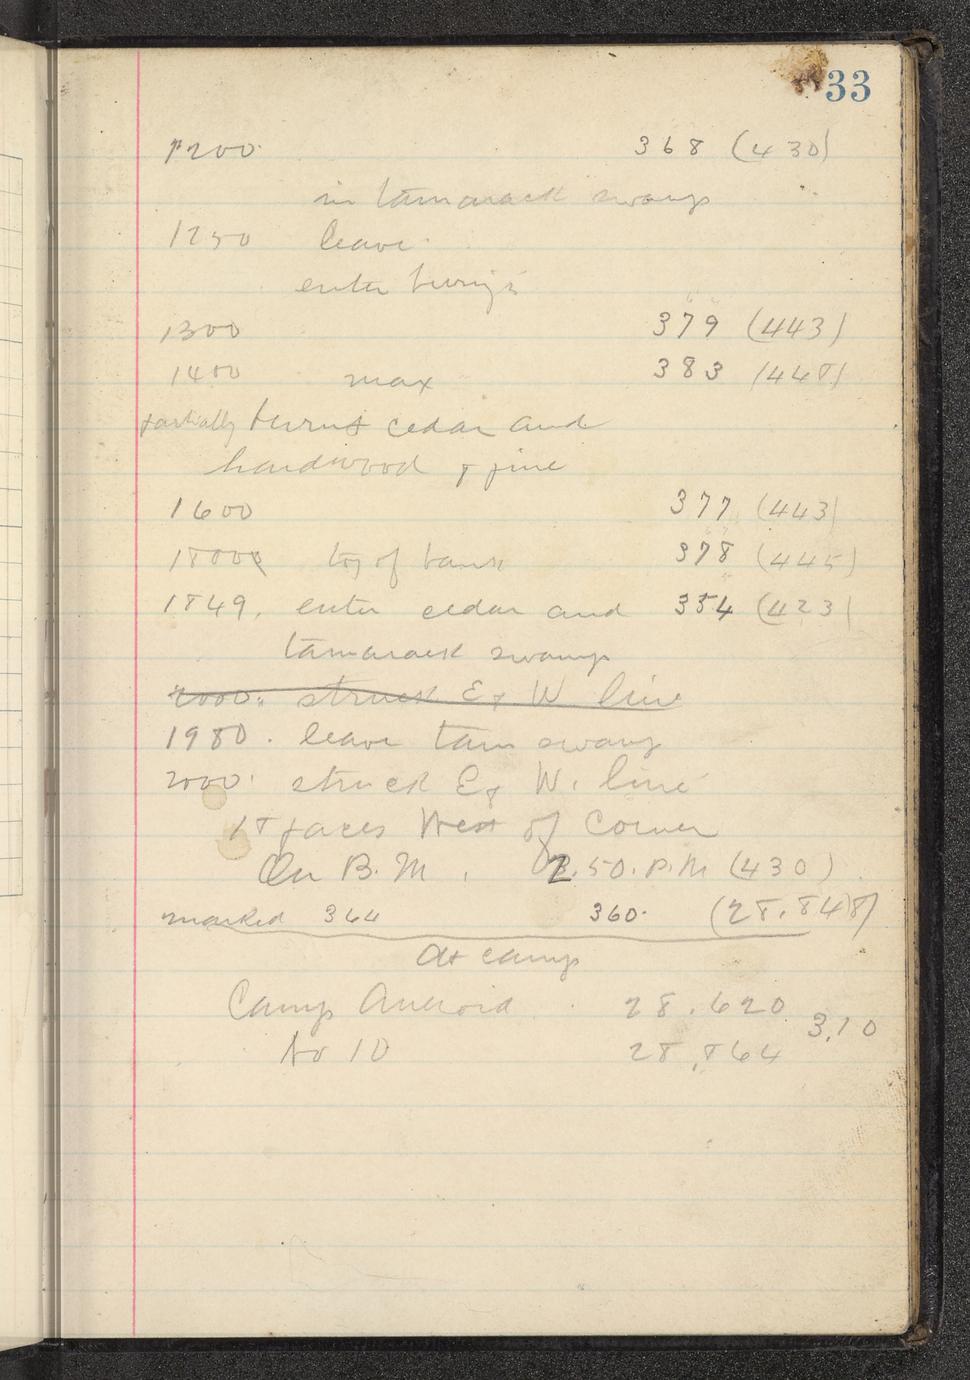 33
1200 368 (430)
in tamarack swamp
1250 leave
enter
1300 379 (443)
1400 max 383 (448)
partially burnt cedar and
hardwood & pine
1600 377 (443)
1800 top of bank 378 (445)
1849. enter cedar and 354 (423)
tamarack swamp
2000. struck E & W line
1980. leave tam swamp
2000 struck E & W. line
18 paces West of Corner
On B.M. 2.50. P.M (430)
marked 364 360. (28.848)
At camp
Camp Aneroid 28.620
3.10
No 10 28.864